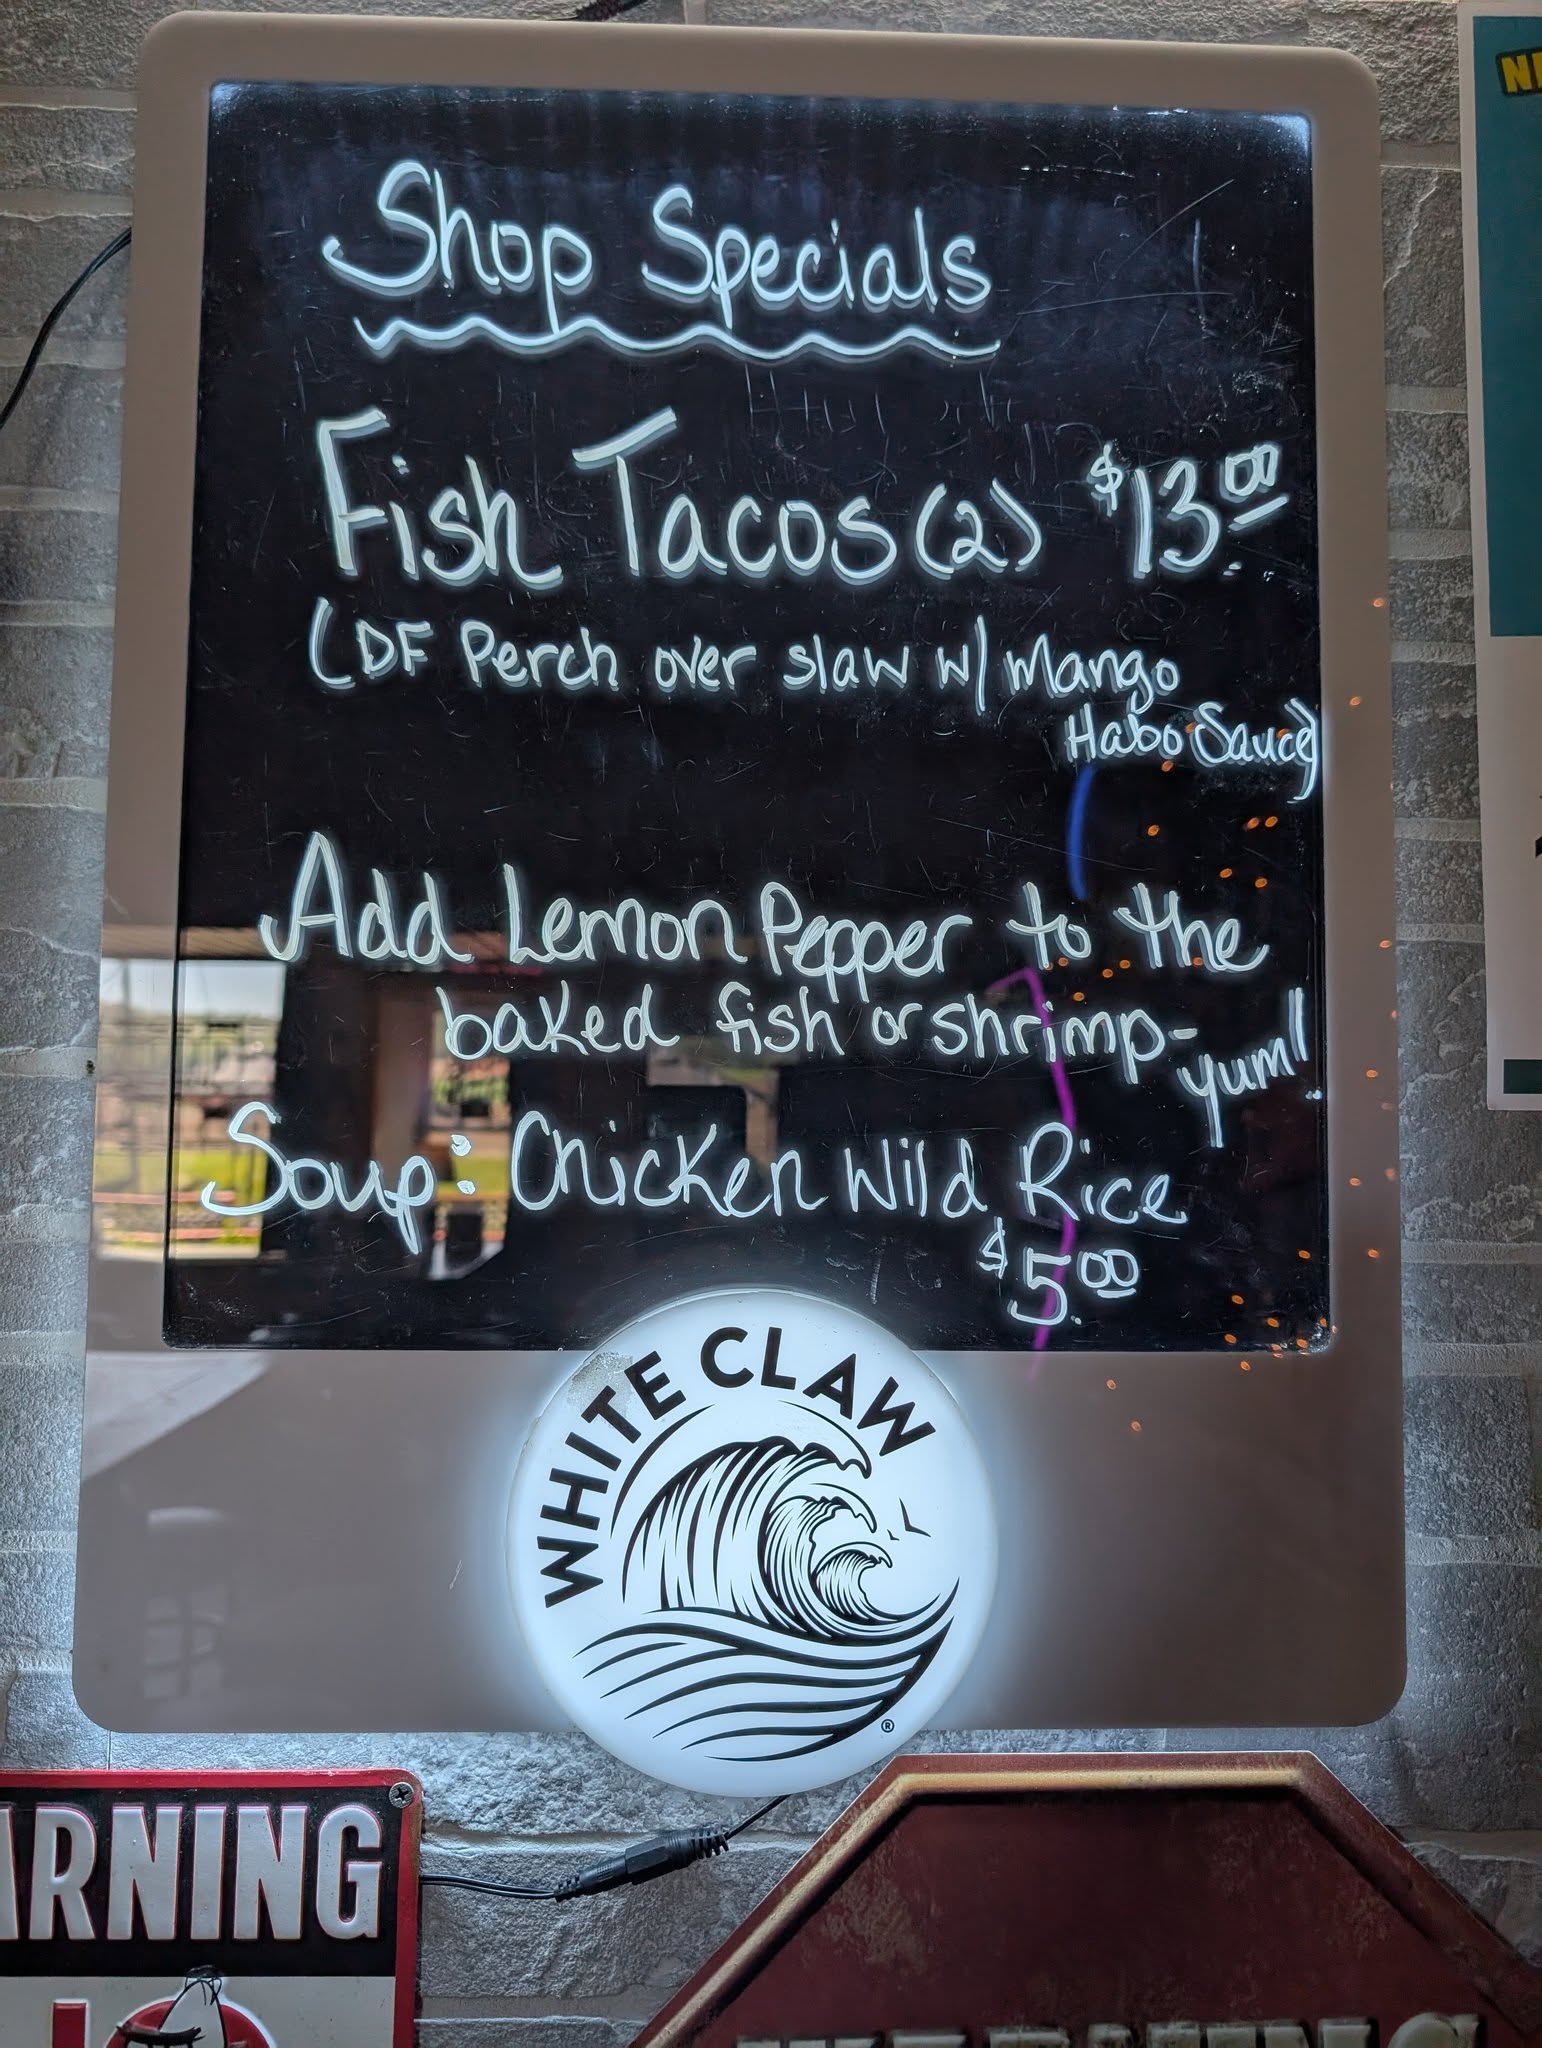 Shop Specials
Fish Tacos (2) $13.00
(DF Perch over slaw w/ Mango
Habo Sauce)
Add Lemon Pepper to the
baked fish or shrimp-
yum!!
Soup: Chicken Wild Rice
$5.00
WHITE CLAW
®
ARNING